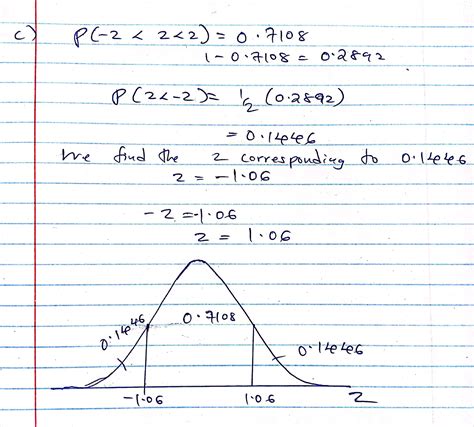 c) P(-z < z < z) = 0.7108
1 - 0.7108 = 0.2892
P(z < -z) = 1/2 (0.2892)
= 0.1446
We find the z corresponding to 0.1446
z = -1.06
-z = -1.06
z = 1.06
0.1446 0.7108 0.1446
-1.06 1.06 z